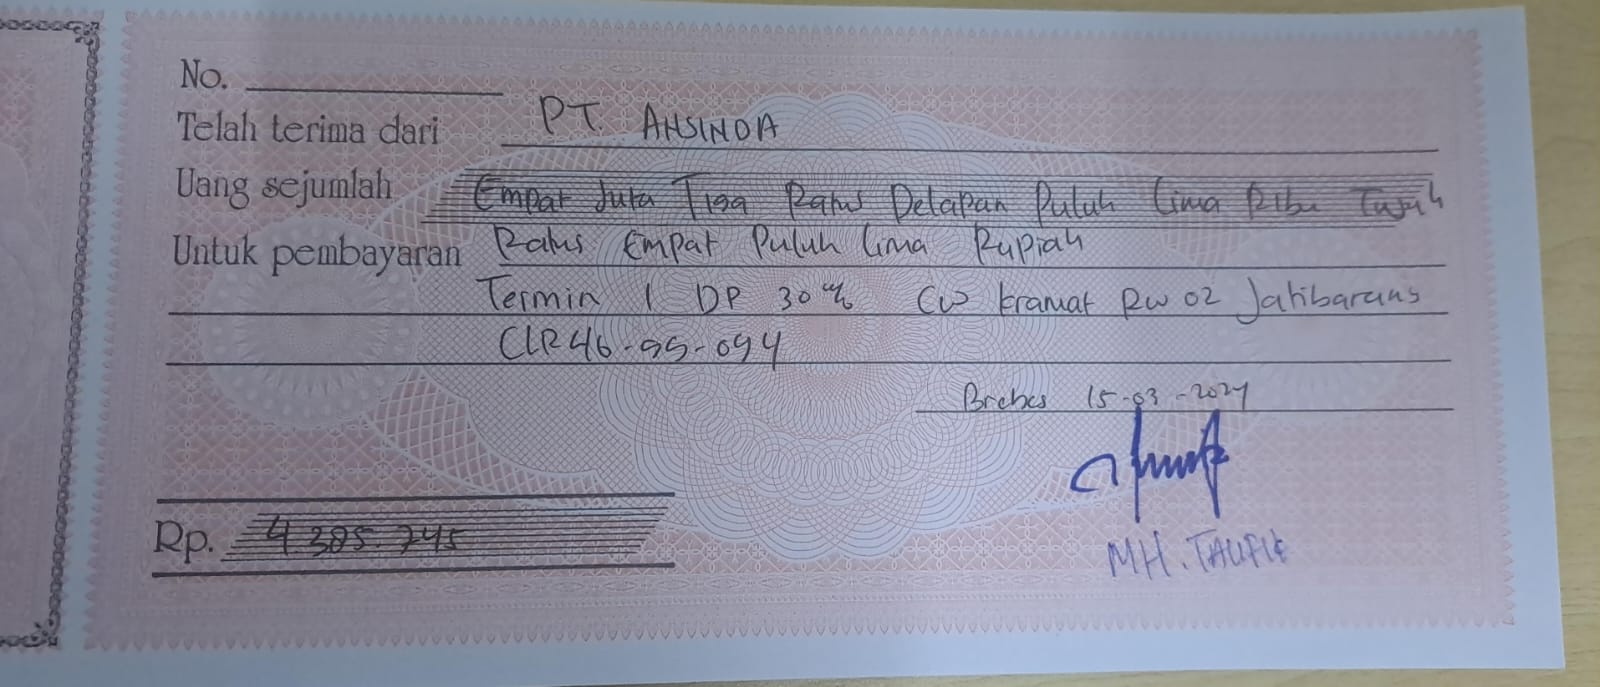 No.
Telah terima dari PT. AHSINDA
Uang sejumlah Empat Juta Tiga Ratus Delapan Puluh Lima Ribu Tujuh
Untuk pembayaran Ratus Empat Puluh Lima Rupiah
Termin 1 DP 30% CW Kramat RW 02 Jatibarang
CLR46-99-094
Brebes 15-03-2024
Rp. 4.385.745
MH. TAUFIK